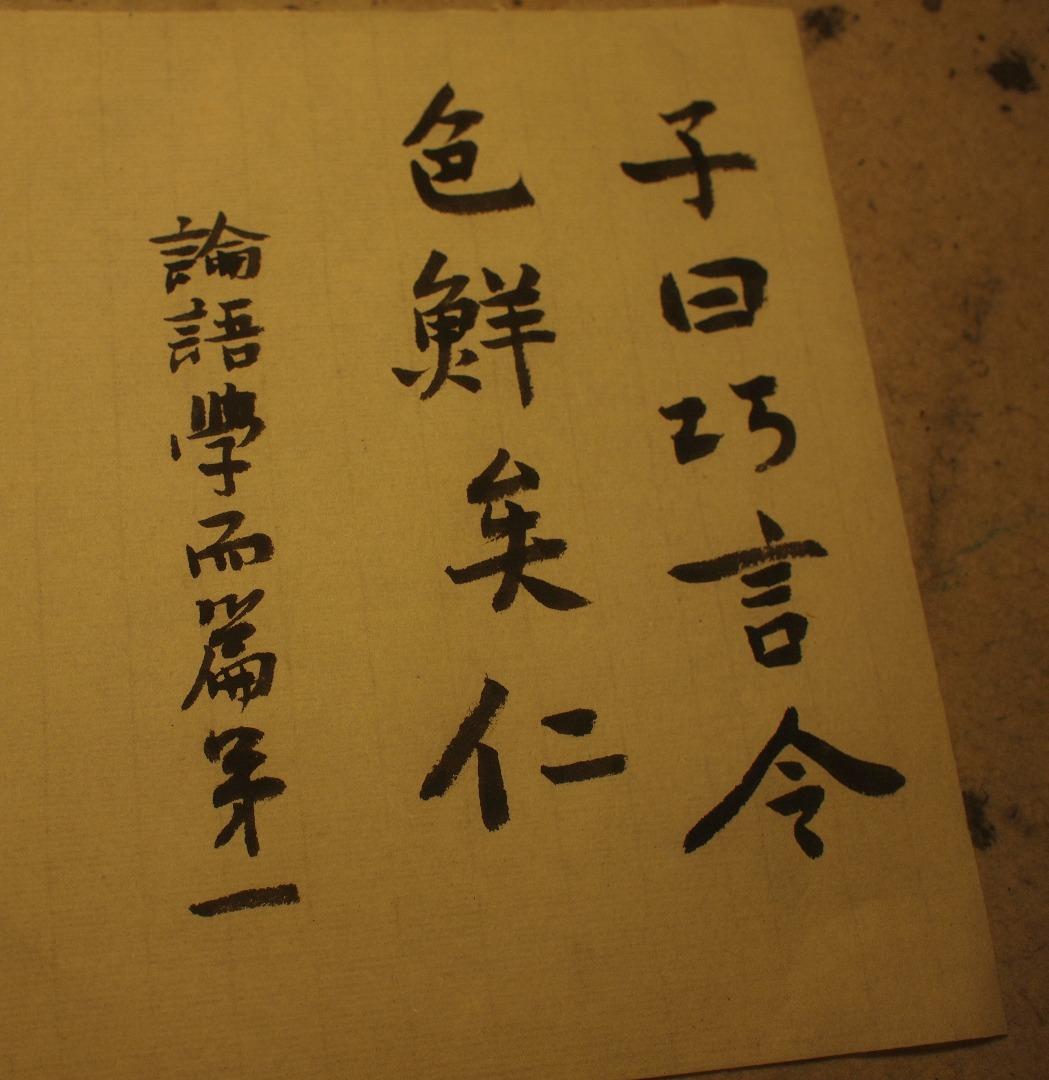 子曰巧言令
色鮮矣仁
論語學而篇第一